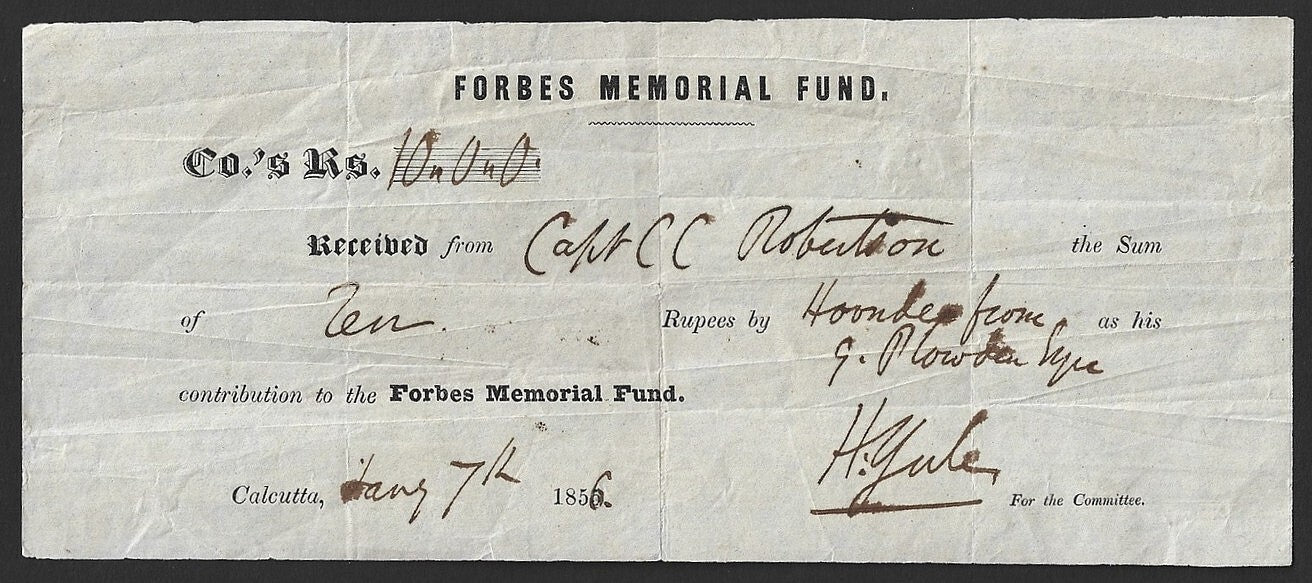 FORBES MEMORIAL FUND.
Co.'s Rs. 10 " 0 " 0.
Received from Capt C C Robertson the Sum
of Ten. Rupees by Hoondee from as his
G. Plowden Esqre
contribution to the Forbes Memorial Fund.
H. Yule
Calcutta, Jany 7th 1856. For the Committee.